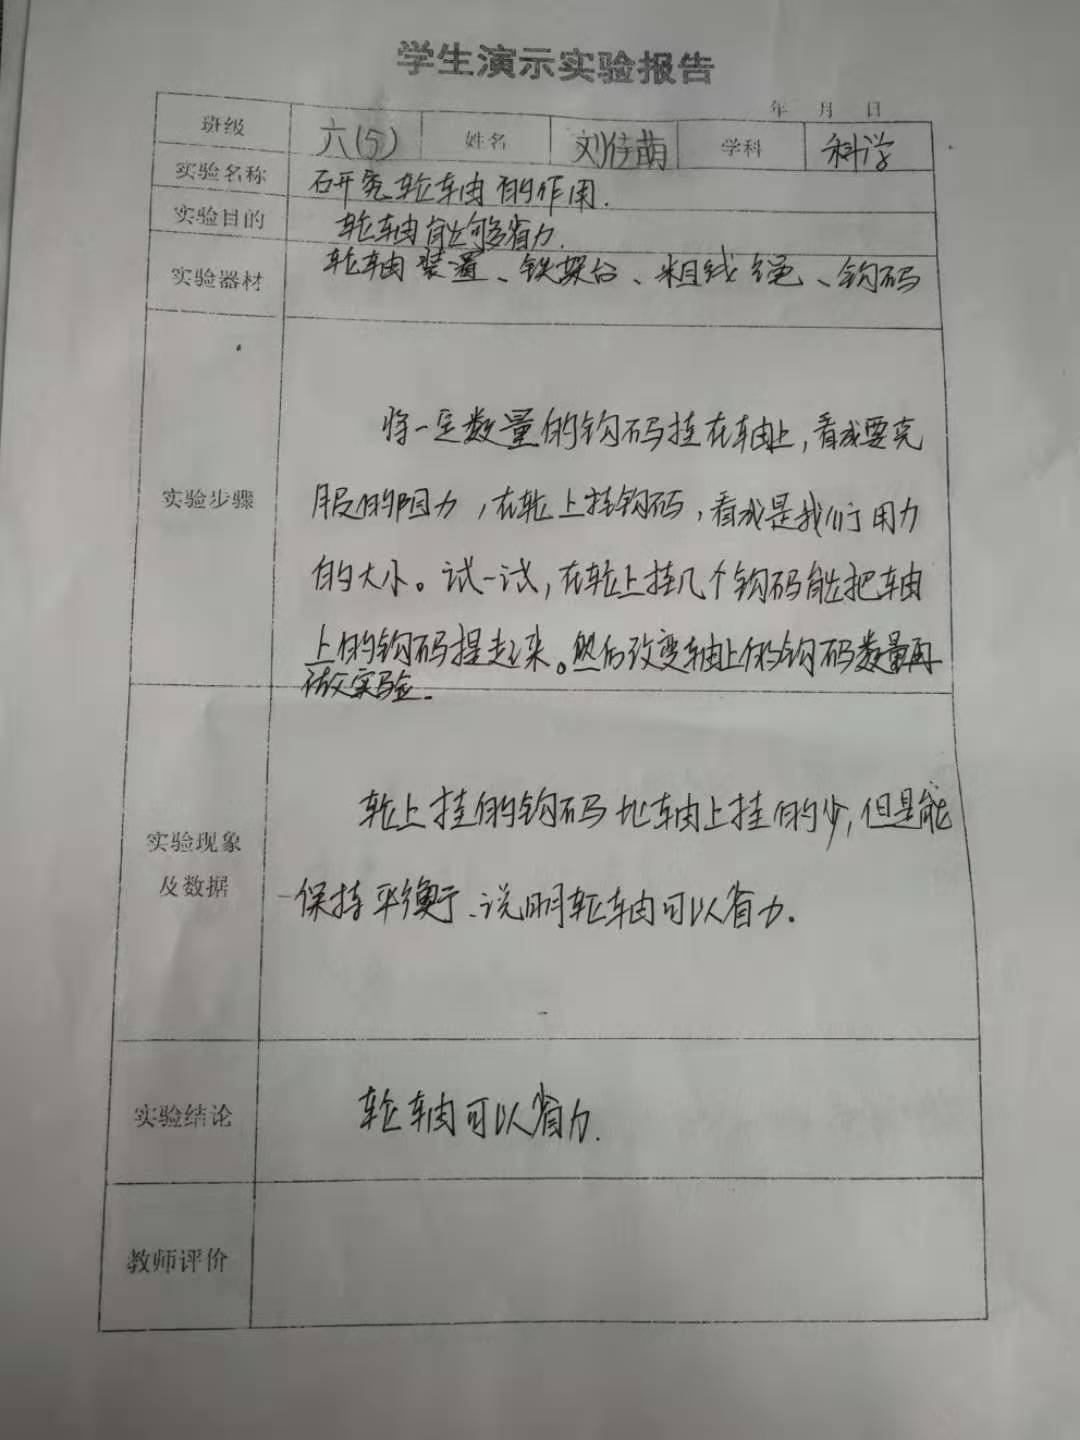 学生演示实验报告
年 月 日
班级 六(5) 姓名 刘佳萌 学科 科学
实验名称 研究轮轴的作用.
实验目的 轮轴能够省力.
实验器材 轮轴装置、铁架台、粗线绳、钩码
将一定数量的钩码挂在轴上,看成要克
实验步骤 服的阻力,在轮上挂钩码,看成是我们用力
的大小。试一试,在轮上挂几个钩码能把轴
上的钩码提起来。然后改变轴上的钩码数量再
做实验.
轮上挂的钩码比轴上挂的少,但是能
实验现象
及数据 保持平衡,说明轮轴可以省力.
实验结论 轮轴可以省力.
教师评价